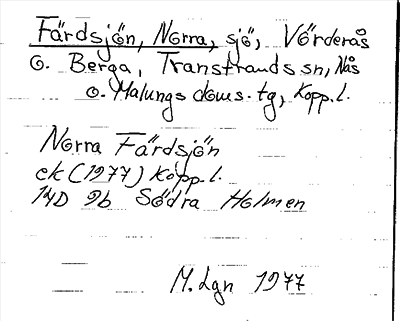 Färdsjön, Norra, sjö, Vörderås
o. Berga, Transtrands sn, Nås
o. Malungs doms. tg, Kopp. l.
Norra Färdsjön
ek (1977) Kopp. l.
14D 9b Södra Holmen
M. Lgn 1977